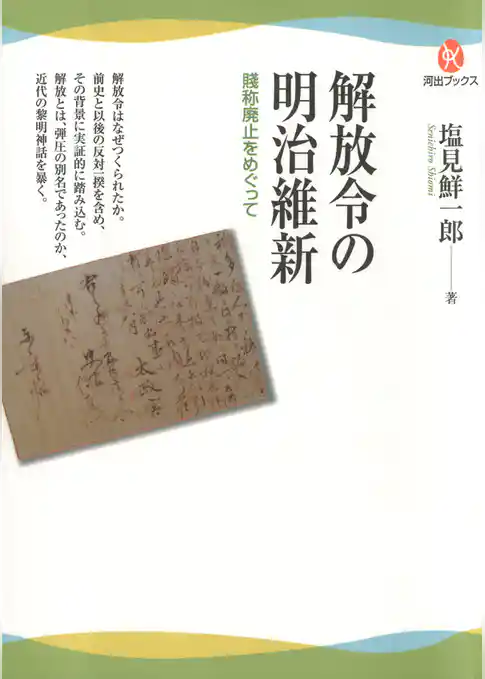 河出ブックス
塩見鮮一郎――著
Senichiro Shiomi
解放令の
明治維新
賤称廃止をめぐって
解放令はなぜつくられたか。
前史と以後の反対一揆を含め、
その背景に実証的に踏み込む。
解放とは、弾圧の別名であったのか、
近代の黎明神話を暴く。